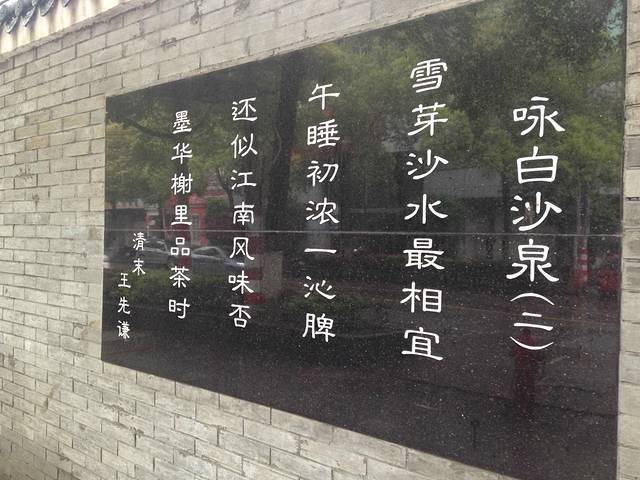 咏白沙泉（二）
雪芽沙水最相宜
午睡初浓一沁脾
还似江南风味否
墨华榭里品茶时
清末
王先谦